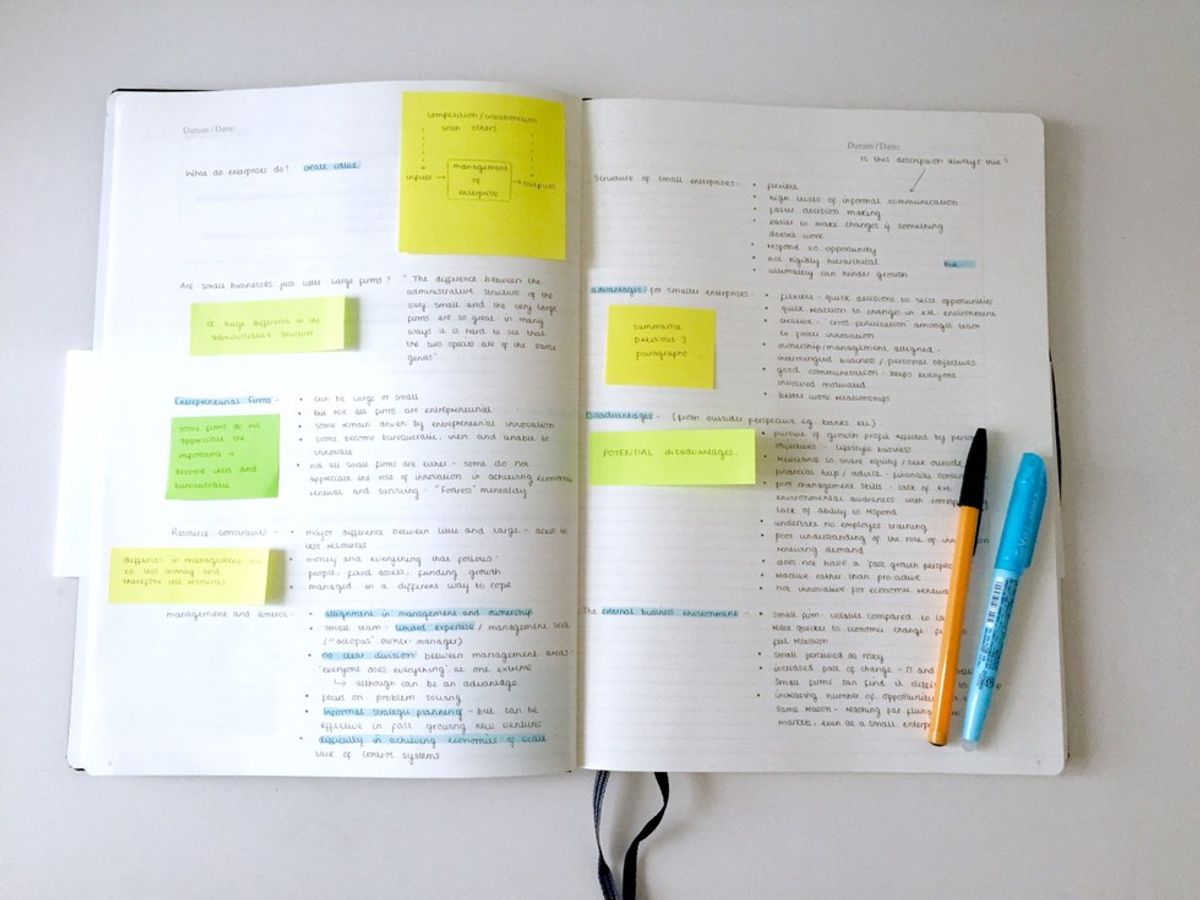 Datum/Date:
What do enterprises do? create value
competition/collaboration
with others
inputs → management → outputs
of
enterprise
Are small businesses just little large firms?
is. huge difference in the
administrative structure
"The difference between the
administrative structure of the
very small and the very large
firms are so great - in many
ways it is hard to see that
the two species are of the same
genus"
Entrepreneurial firms -
some firms do not
appreciate the
importance →
become inert and
bureaucratic
• can be large or small
• but not all firms are entrepreneurial
• some remain driven by entrepreneurial innovation
• some become bureaucratic, inert and unable to
innovate
• not all small firms are either - some do not
appreciate the role of innovation in achieving economic
renewal and surviving - "Fortress" mentality
Resource constraints -
differences in management due
to less money and
therefore less resources
• major difference between little and large - access to
less resources
• money and everything that follows:
people, fixed assets, funding growth
• managed in a different way to cope
management and control -
• alignment in management and ownership
• small team - limited expertise / management skill
("octopus" owner-manager)
• no clear division between management areas -
'everyone does everything' at one extreme
↳ although can be an advantage
• focus on problem solving
• informal strategic planning - but can be
effective in fast growing new ventures
• difficulty in achieving economies of scale
lack of control systems
Datum/Date:
Is this description always true?
Structure of small enterprises -
• flexible
• high levels of informal communication
• faster decision making
• easier to make changes if something
doesnt work
• respond to opportunity
• not rigidly hierarchical
• ultimately can hinder growth
but...
advantages for smaller enterprises -
summarise
previous 3
paragraphs
• flexible - quick decisions to seize opportunities
• quick reaction to changes in ext. environment
• creative - 'cross-fertilisation' amongst team
to foster innovation
• ownership/management aligned -
intermingled business / personal objectives
• good communication - keeps everyone
involved motivated
• better work relationships
Disadvantages - (from outsider perspective eg. banks etc)
POTENTIAL disadvantages.
• pursuit of growth profit affected by
objectives - lifestyle business
• reluctance to share equity / seek outside
financial help / advice -
• poor management skills - lack of ext.
environmental awareness with
lack of ability to respond
• undertake no employee training
• poor understanding of the role of
renewing demand
• does not have a fast growth
• reactive rather than pro-active
• not innovative for economic
The external business environment -
• small firm - volatile compared to
react quicker to economic change -
feel recession
• small perceived as risky
• increased pace of change - IT and
Small firms can find it
• increasing number of
same reason - reaching far flung
markets, even as a small